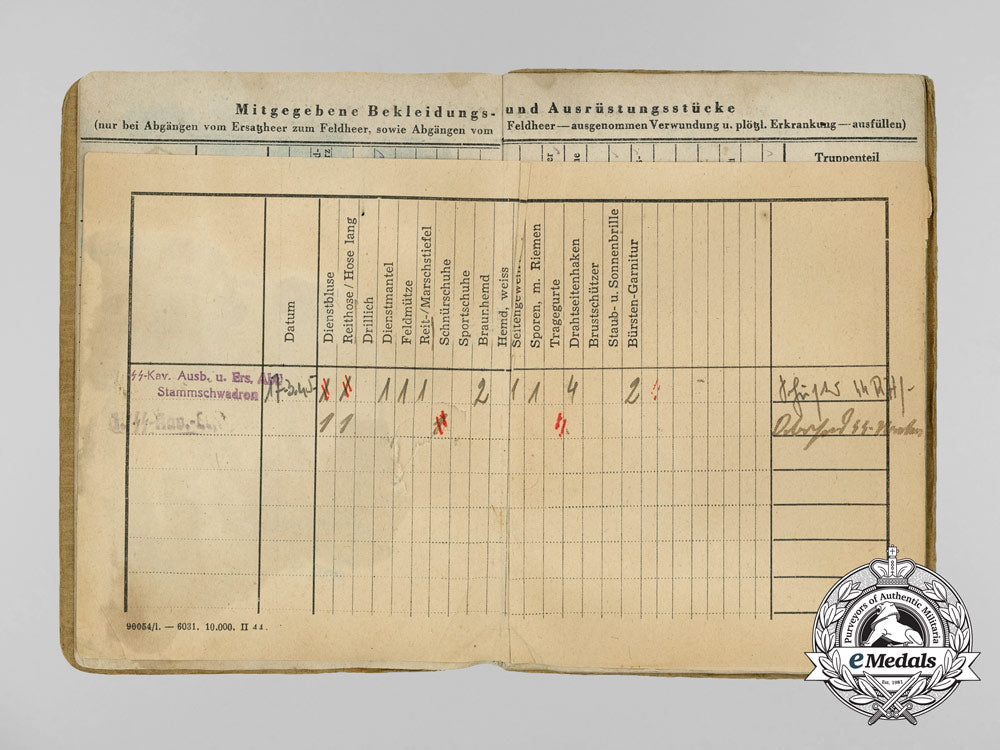 Mitgegebene Bekleidungs- und Ausrüstungsstücke
(nur bei Abgängen vom Ersatzheer zum Feldheer, sowie Abgängen vom Feldheer — ausgenommen Verwundung u. plötzl. Erkrankung — ausfüllen)
Truppenteil
Datum
Dienstbluse
Reithose / Hose lang
Drillich
Dienstmantel
Feldmütze
Reit-/Marschstiefel
Schnürschuhe
Sportschuhe
Braunhemd
Hemd, weiss
Sporen, m. Riemen
Tragegurte
Drahtseitenhaken
Brustschützer
Staub- u. Sonnenbrille
Bürsten-Garnitur
SS-Kav. Ausb. u. Ers. Abt.
Stammschwadron
17.3.45 1 1 1 1 1 2 1 1 4 2
1 1
90054/1. — 6031. 10.000. II 44.
Purveyors of Authentic Militaria
eMedals
Est. 1981